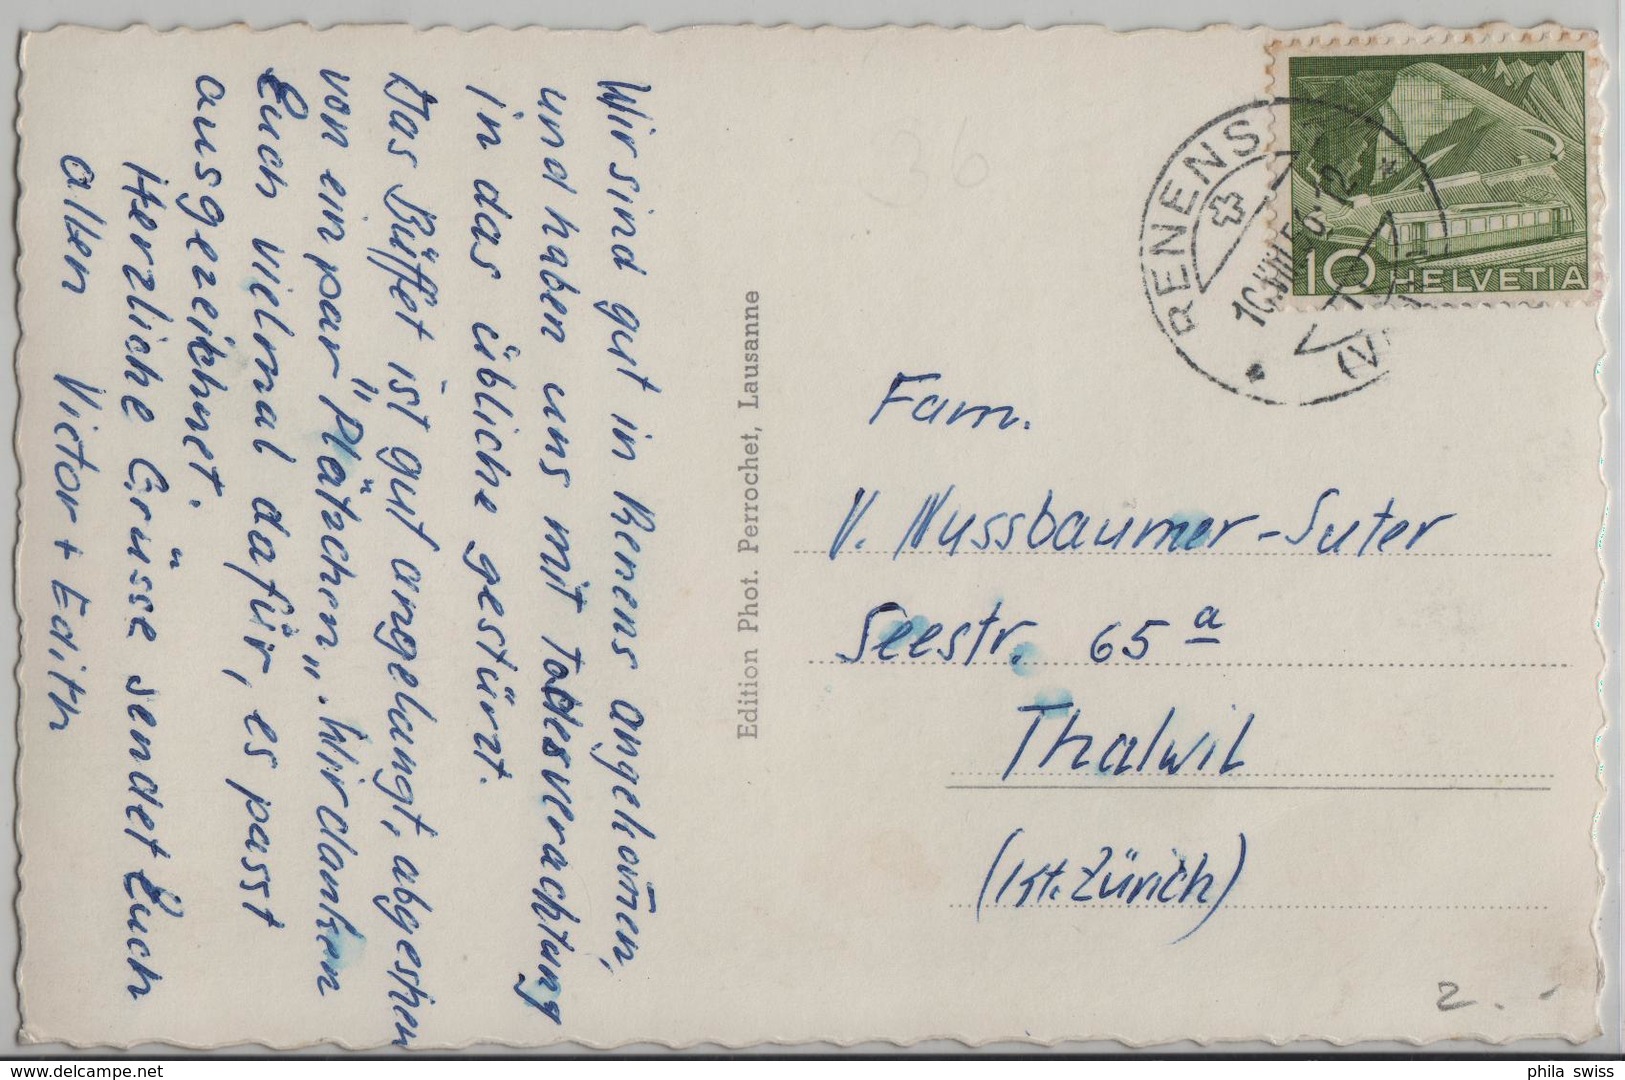 Wir sind gut in Renens angekom̅en,
und haben uns mit Todesverachtung
in das übliche gestürzt.
Das Büffet ist gut angelangt, abgesehen
von ein par "Plätzchen". Wir danken
Euch vielmal dafür, es passt
ausgezeichnet.
Herzliche Grüsse sendet Euch
allen Victor + Edith
Edition Phot. Perrochet, Lausanne
36
RENENS
10.VIII.56.-12
(V
10 HELVETIA
Fam.
V. Nussbaumer-Suter
Seestr. 65 a
Thalwil
(Kt. Zürich)
2.-
www.delcampe.net
phila swiss